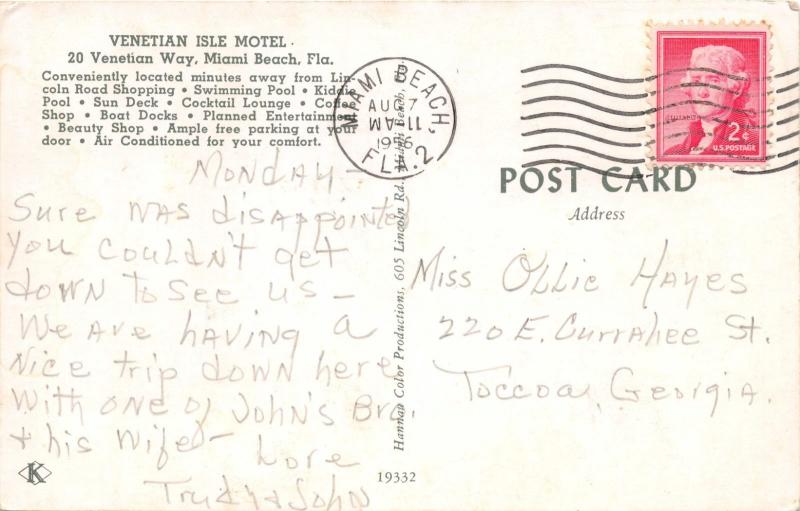 VENETIAN ISLE MOTEL
20 Venetian Way, Miami Beach, Fla.
Conveniently located minutes away from Lin-
coln Road Shopping • Swimming Pool • Kiddie
Pool • Sun Deck • Cocktail Lounge • Coffee
Shop • Boat Docks • Planned Entertainment
• Beauty Shop • Ample free parking at your
door • Air Conditioned for your comfort.
Monday -
Sure was disappointed
you couldn't get
down to see us -
We are having a
nice trip down here
with one of John's Bro.
+ his wife - Love
Trudy + John
K
Hannau Color Productions, 605 Lincoln Rd., Miami Beach, Fla.
19332
MIAMI BEACH,
AUG 7
11 AM
1956
FLA. 2
2¢
U.S. POSTAGE
POST CARD
Address
Miss Ollie Hayes
220 E. Currahee St.
Toccoa, Georgia.